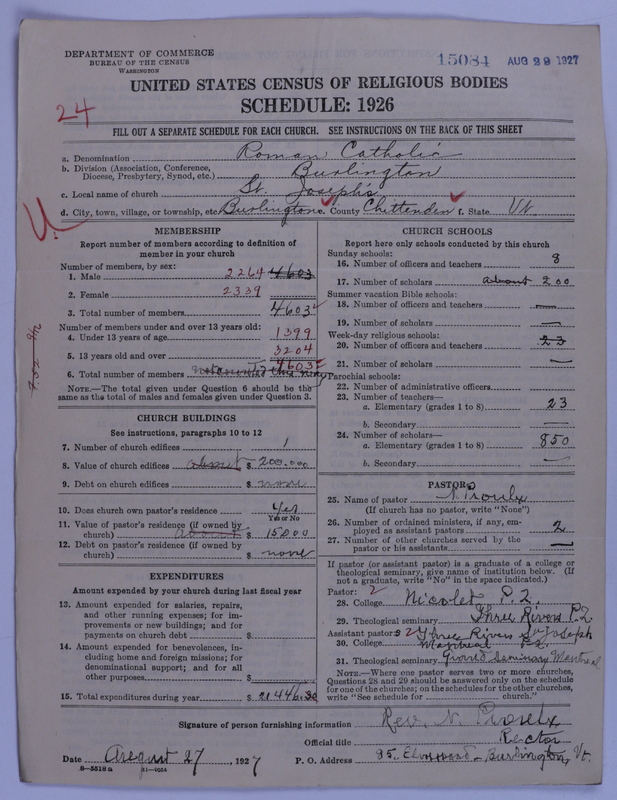 DEPARTMENT OF COMMERCE
BUREAU OF THE CENSUS
WASHINGTON
15084 AUG 29 1927
UNITED STATES CENSUS OF RELIGIOUS BODIES
SCHEDULE: 1926
24
FILL OUT A SEPARATE SCHEDULE FOR EACH CHURCH. SEE INSTRUCTIONS ON THE BACK OF THIS SHEET
a. Denomination Roman Catholic
b. Division (Association, Conference, Diocese, Presbytery, Synod, etc.) Burlington
c. Local name of church St. Joseph's
d. City, town, village, or township, etc. Burlington e. County Chittenden f. State Vt.
MEMBERSHIP
Report number of members according to definition of member in your church
Number of members, by sex:
1. Male 2264 4603
2. Female 2339
3. Total number of members 4603
Number of members under and over 13 years old:
4. Under 13 years of age 1399
5. 13 years old and over 3204
6. Total number of members 4603
NOTE.—The total given under Question 6 should be the same as the total of males and females given under Question 3.
CHURCH BUILDINGS
See instructions, paragraphs 10 to 12
7. Number of church edifices 1
8. Value of church edifices about $ 200.000
9. Debt on church edifices $ none
10. Does church own pastor's residence Yes
Yes or No
11. Value of pastor's residence (if owned by church) about $ 15000
12. Debt on pastor's residence (if owned by church) $ none
EXPENDITURES
Amount expended by your church during last fiscal year
13. Amount expended for salaries, repairs, and other running expenses; for improvements or new buildings; and for payments on church debt $
14. Amount expended for benevolences, including home and foreign missions; for denominational support; and for all other purposes $
15. Total expenditures during year $ 21446.30
CHURCH SCHOOLS
Report here only schools conducted by this church
Sunday schools:
16. Number of officers and teachers 8
17. Number of scholars about 200
Summer vacation Bible schools:
18. Number of officers and teachers —
19. Number of scholars —
Week-day religious schools:
20. Number of officers and teachers 23
21. Number of scholars —
Parochial schools:
22. Number of administrative officers
23. Number of teachers—
a. Elementary (grades 1 to 8) 23
b. Secondary —
24. Number of scholars—
a. Elementary (grades 1 to 8) 850
b. Secondary —
PASTOR
25. Name of pastor N. Proulx
(If church has no pastor, write "None")
26. Number of ordained ministers, if any, employed as assistant pastors 2
27. Number of other churches served by the pastor or his assistants —
If pastor (or assistant pastor) is a graduate of a college or theological seminary, give name of institution below. (If not a graduate, write "No" in the space indicated.)
Pastor: 2
28. College Nicolet P.Q.
29. Theological seminary Three Rivers P.Q.
Assistant pastors 2 Three Rivers St Joseph
30. College Montreal P.Q.
31. Theological seminary Grand Seminary Montreal
NOTE.—Where one pastor serves two or more churches, Questions 28 and 29 should be answered only on the schedule for one of the churches; on the schedules for the other churches, write "See schedule for church."
Signature of person furnishing information Rev. N. Proulx
Official title Rector
Date August 27, 1927 P. O. Address 85 Elmwood - Burlington, Vt.
8-5518a